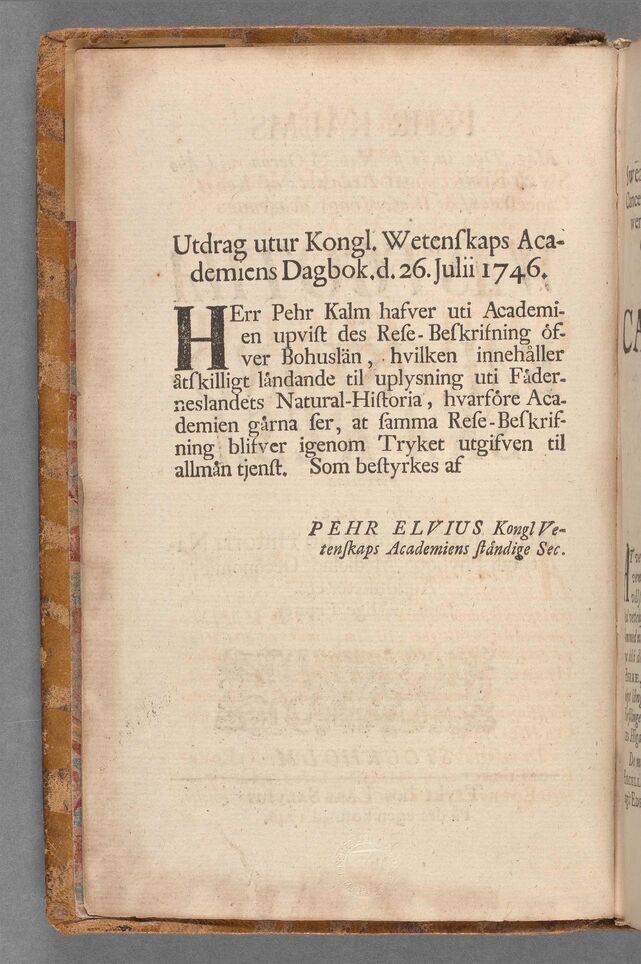 Utdrag utur Kongl. Wetenſkaps Aca-
demiens Dagbok. d. 26. Julii 1746.
HErr Pehr Kalm hafver uti Academi-
en upviſt des Reſe-Beſkrifning öf-
ver Bohuslän, hvilken innehåller
åtſkilligt låndande til uplysning uti Fåder-
neslandets Natural-Hiſtoria, hvarföre Aca-
demien gårna ſer, at ſamma Reſe-Beſkrif-
ning blifver igenom Tryket utgifven til
allmån tjenſt. Som beſtyrkes af
PEHR ELVIUS Kongl Ve-
tenſkaps Academiens ſtåndige Sec.